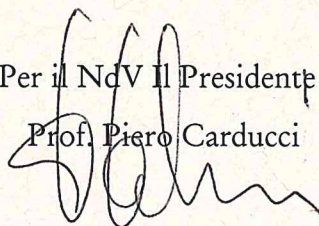 Per il NdV Il Presidente
Prof. Piero Carducci